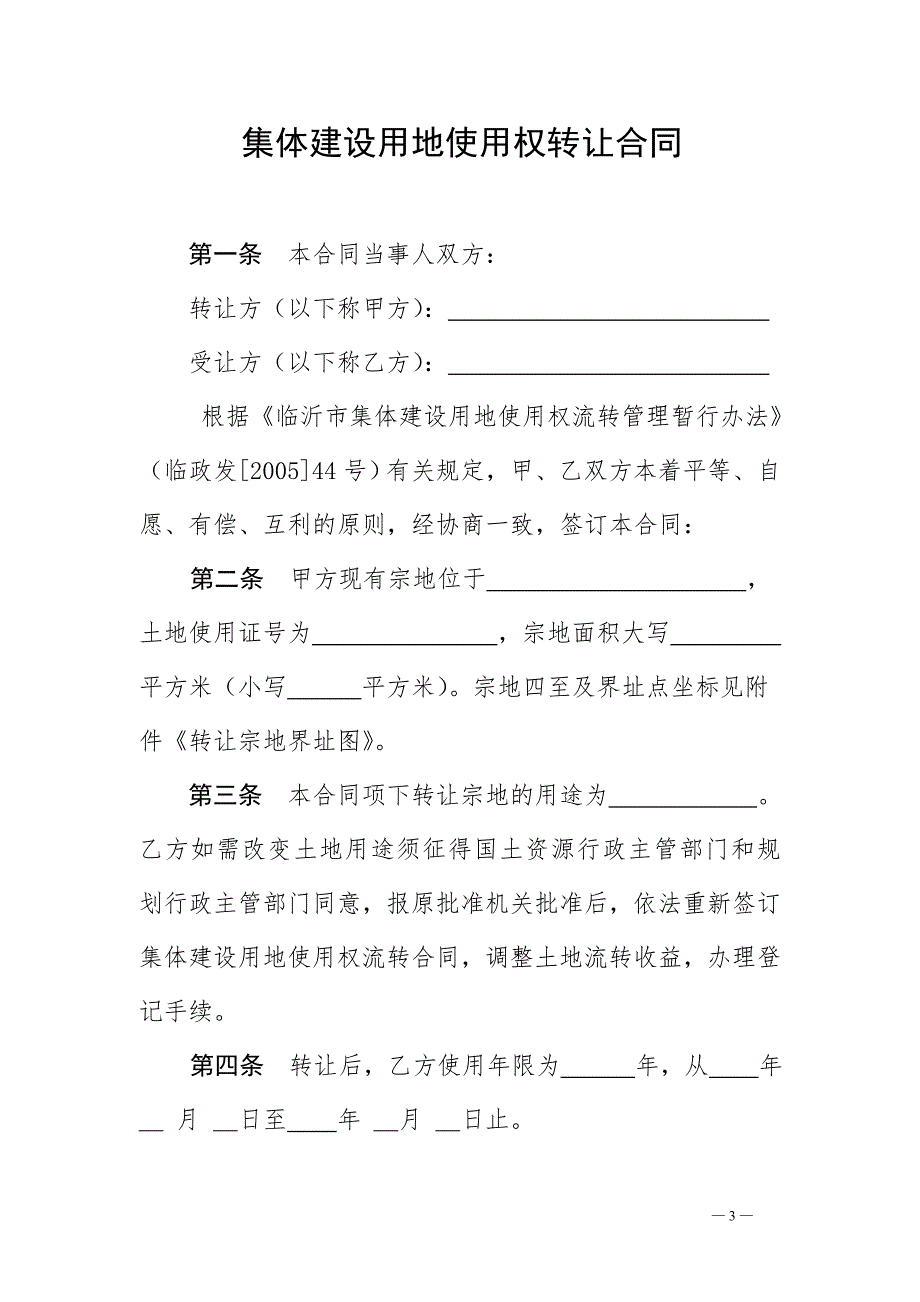 集体建设用地使用权转让合同
第一条　本合同当事人双方：
转让方（以下称甲方）：__________________________
受让方（以下称乙方）：__________________________
根据《临沂市集体建设用地使用权流转管理暂行办法》
（临政发[2005]44号）有关规定，甲、乙双方本着平等、自
愿、有偿、互利的原则，经协商一致，签订本合同：
第二条　甲方现有宗地位于_____________________，
土地使用证号为_______________，宗地面积大写_________
平方米（小写______平方米）。宗地四至及界址点坐标见附
件《转让宗地界址图》。
第三条　本合同项下转让宗地的用途为____________。
乙方如需改变土地用途须征得国土资源行政主管部门和规
划行政主管部门同意，报原批准机关批准后，依法重新签订
集体建设用地使用权流转合同，调整土地流转收益，办理登
记手续。
第四条　转让后，乙方使用年限为______年，从____年
__ 月 __日至____年 __月 __日止。
— 3 —